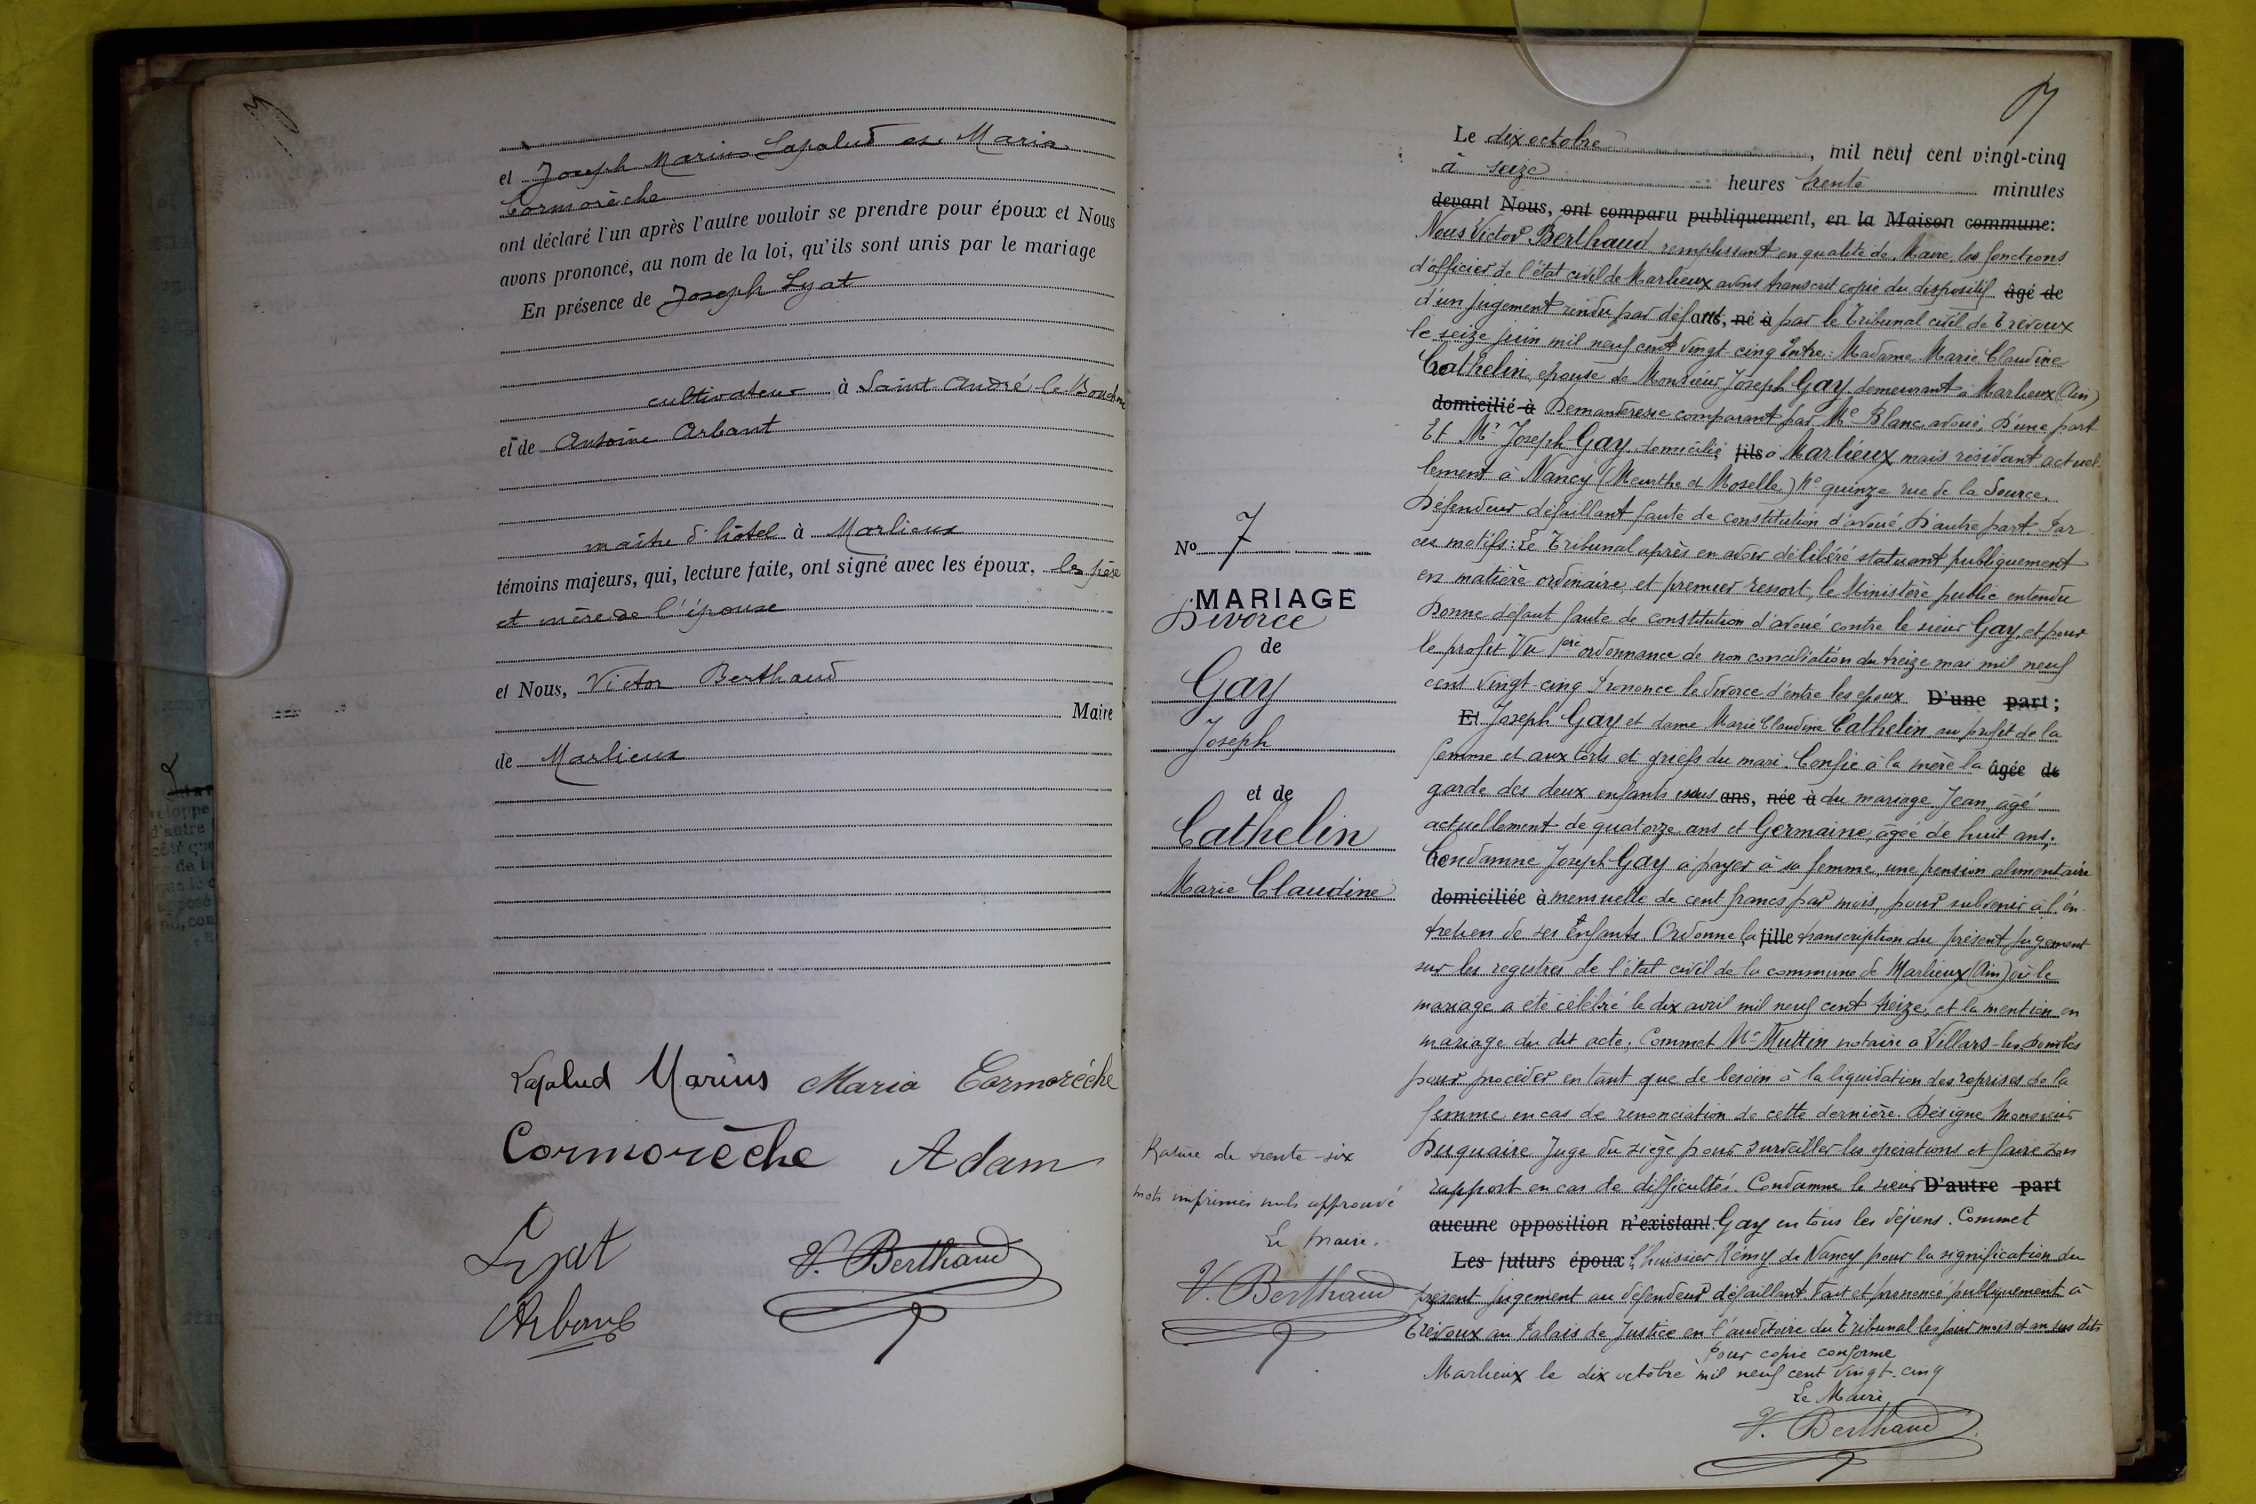 et Joseph Marius Lapalud et Maria
Cormorèche
ont déclaré l'un après l'autre vouloir se prendre pour époux et Nous
avons prononcé, au nom de la loi, qu'ils sont unis par le mariage
En présence de Joseph Lyat
cultivateur à Saint André le Bouchoux
et de Antoine Arbant
maître d'hôtel à Marlieux
témoins majeurs, qui, lecture faite, ont signé avec les époux, les père
et mère de l'épouse
et Nous, Victor Berthaud
Maire
de Marlieux
Lapalud Marius Maria Cormorèche
Cormorèche Adam
Lyat V. Berthaud
Arbant
No 7
MARIAGE
Divorce
de
Gay
Joseph
et de
Cathelin
Marie Claudine
Rature de trente-six
mots imprimés nuls approuvé
Le Maire.
V. Berthaud
7
Le dix octobre, mil neuf cent vingt-cinq
à seize heures trente minutes
devant Nous, ont comparu publiquement, en la Maison commune:
Nous Victor Berthaud remplissant en qualité de Maire, les fonctions
d'officier de l'état civil de Marlieux avons transcrit copie du dispositif âgé de
d'un jugement rendu par défaut ans, né à par le Tribunal civil de Trévoux
le seize juin mil neuf cent vingt-cinq Entre: Madame Marie Claudine
Cathelin, epouse de Monsieur Joseph Gay demeurant à Marlieux (Ain)
domicilié à Demanderesse comparant par Me Blanc avoué, D'une part
Et Mr Joseph Gay domicilié fils à Marlieux mais résidant actuel-
lement à Nancy (Meurthe et Moselle) No quinze rue de la Source.
Défendeur défaillant faute de constitution d'avoué. D'autre part. Par
ces motifs: Le Tribunal après en avoir délibéré statuant publiquement
en matière ordinaire, et premier ressort, le Ministère public entendu
Donne défaut faute de constitution d'avoué contre le sieur Gay, et pour
le profit Vu ordonnance de non conciliation du treize mai mil neuf
cent vingt-cinq Prononce le divorce d'entre les epoux D'une part;
Et Joseph Gay et dame Marie Claudine Cathelin au profit de la
femme et aux torts et griefs du mari. Confie à la mère la âgée de
garde des deux enfants issus ans, née à du mariage Jean, âgé
actuellement de quatorze ans et Germaine, âgée de huit ans;
Condamne Joseph Gay à payer à sa femme, une pension alimentaire
domiciliée à mensuelle de cent francs par mois, pour subvenir à l'en-
tretien de ses Enfants. Ordonne la fille transcription du présent jugement
sur les registres de l'état civil de la commune de Marlieux (Ain) où le
mariage a été célébré le dix avril mil neuf cent treize, et la mention en
mariage du dit acte; Commet Me Muttin notaire à Villars-les-Dombes
pour procéder en tant que de besoin à la liquidation des reprises de la
femme en cas de renonciation de cette dernière. Désigne Monsieur
Duquaire Juge du siège pour surveiller les opérations et faire son
rapport en cas de difficultés. Condamne le sieur D'autre part
aucune opposition n'existant. Gay en tous les dépens. Commet
Les futurs époux L'huissier Rémy de Nancy pour la signification du
présent jugement au défendeur défaillant. Fait et prononcé publiquement à
Trévoux au Palais de Justice en l'auditoire du Tribunal les jour mois et an sus dits
Pour copie conforme
Marlieux le dix octobre mil neuf cent vingt-cinq
Le Maire
V. Berthaud